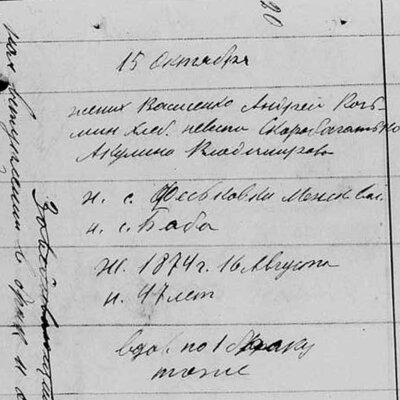 20
15 октября
жених Василенко Андрей Козь-
мин хлеб. невеста Скоробагатько
Акулина Владимирова
ж. с. Феськовки Менск. вол.
н. с. Баба
ж. 1874 г. 16 Августа
н. 47 лет
вдов. по 1 браку
тоже